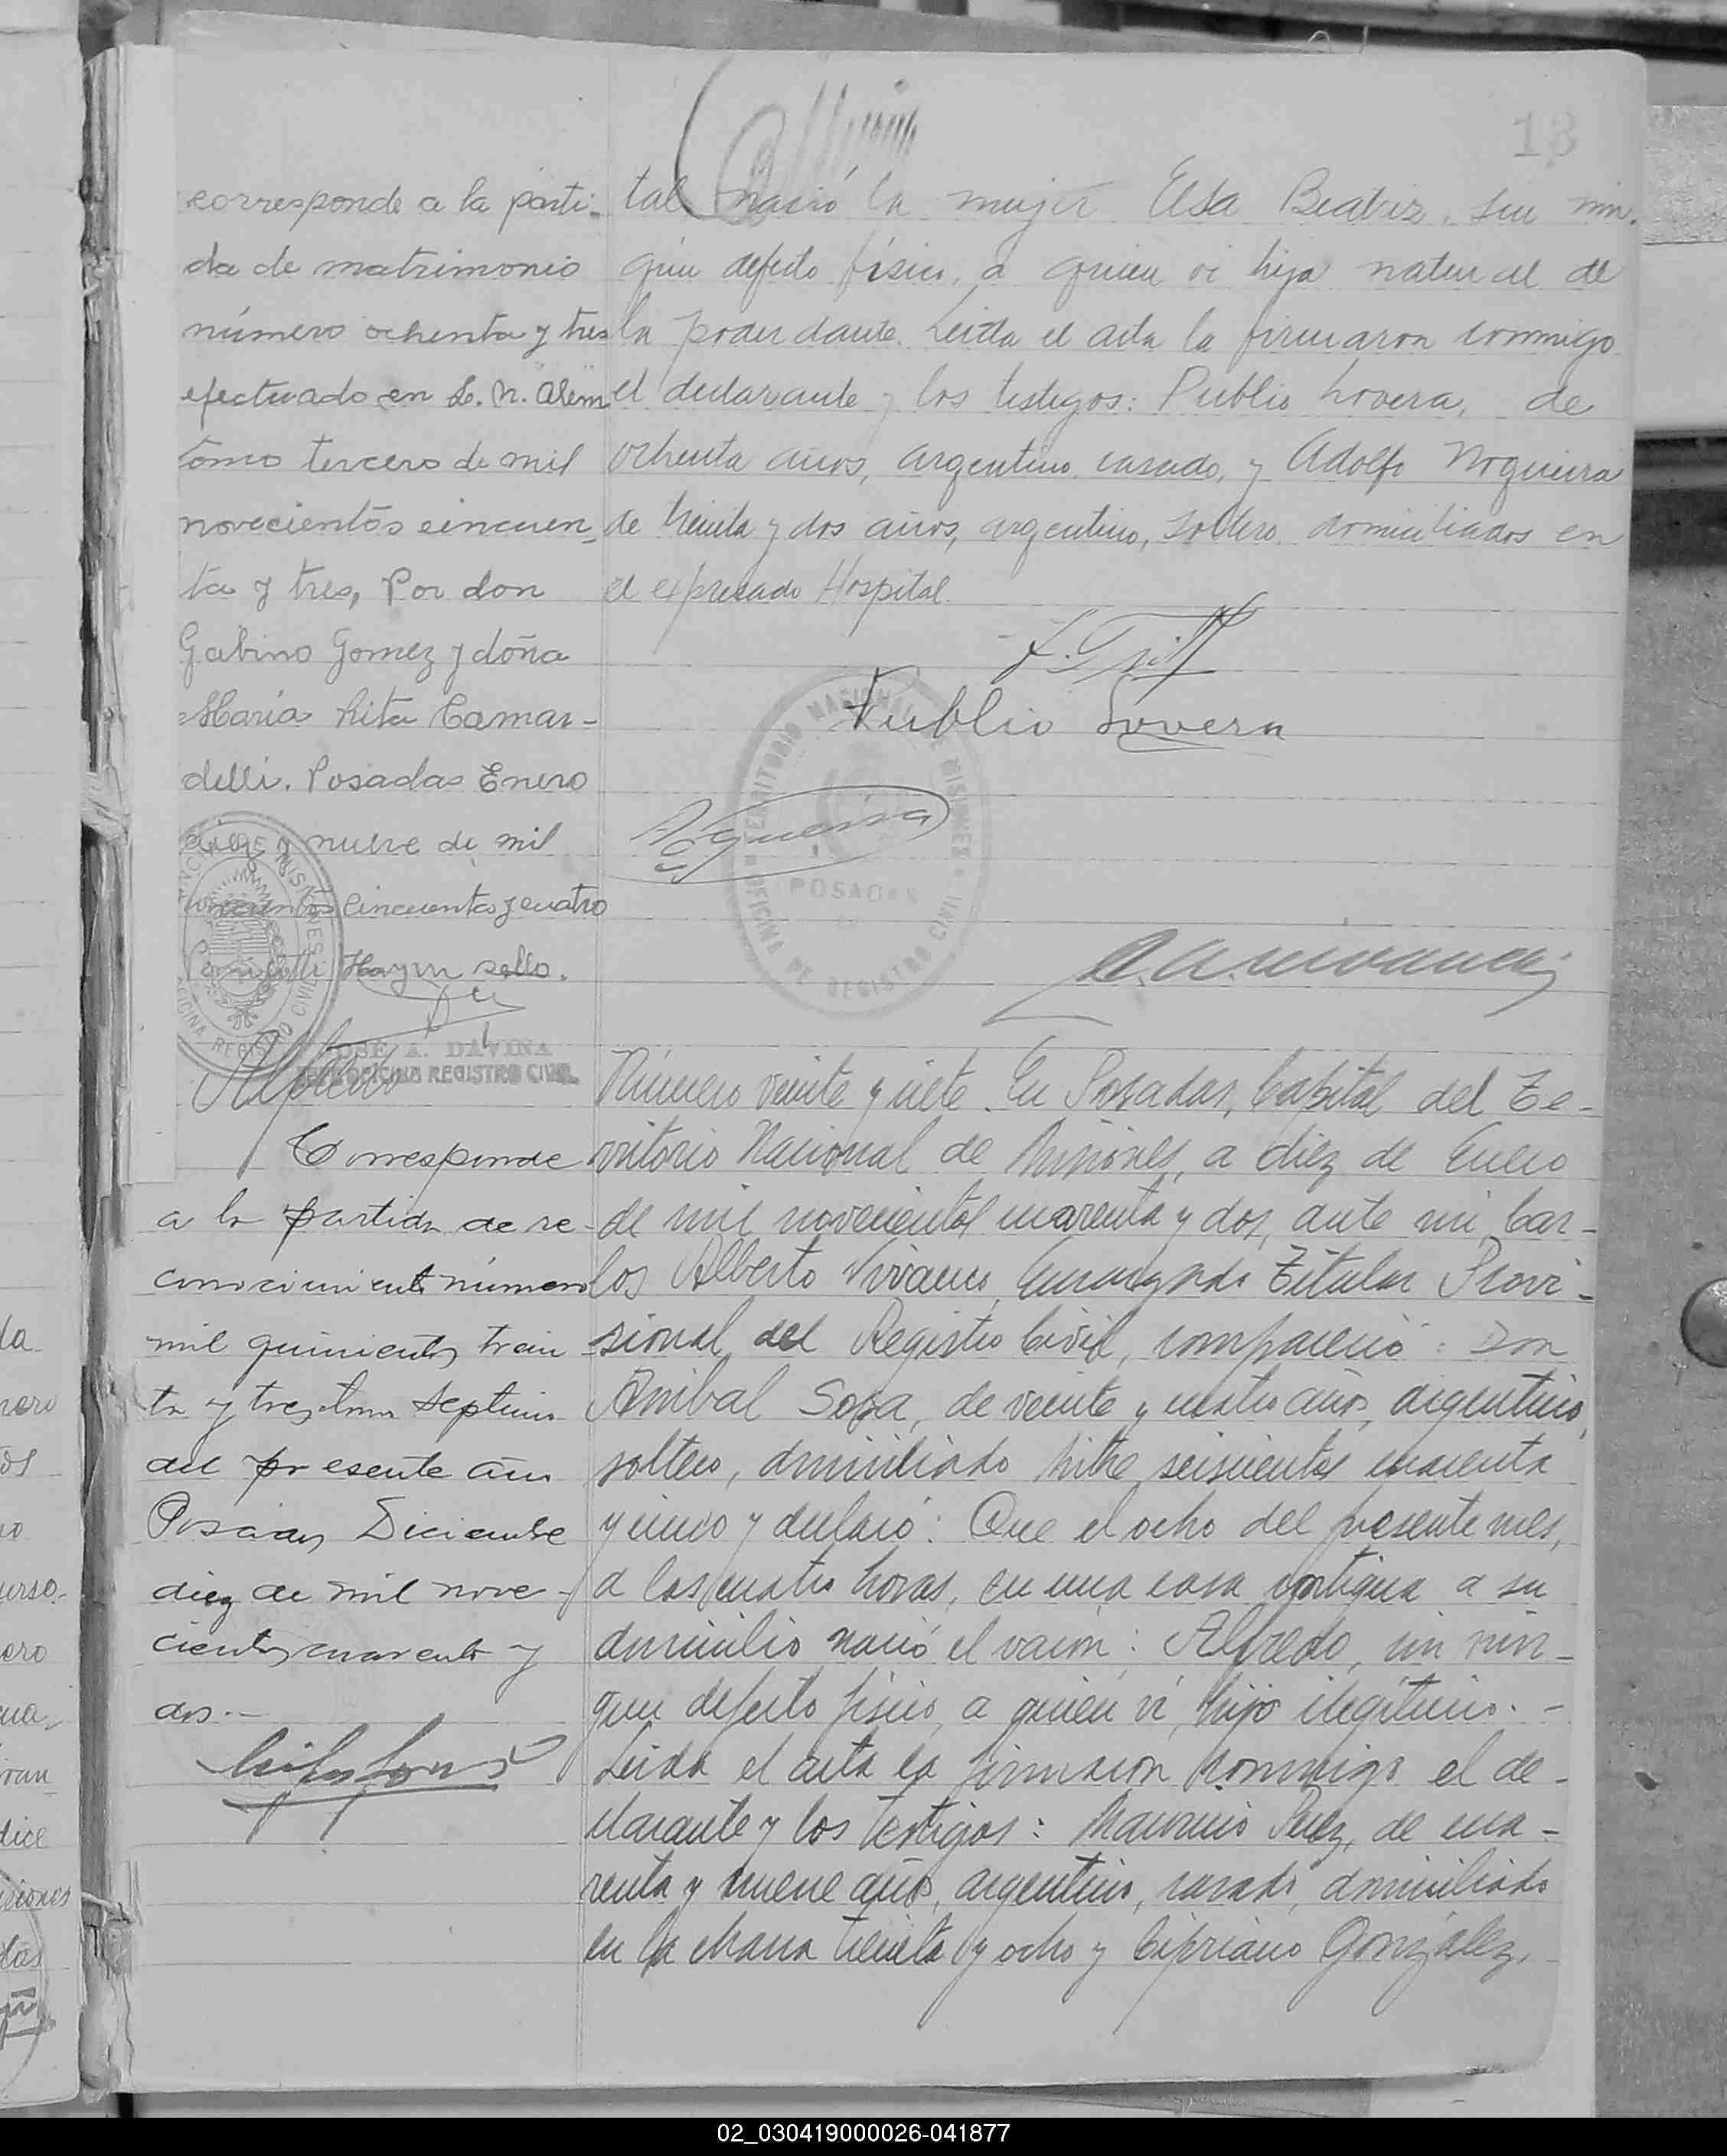 13
corresponde a la parti-
da de matrimonio
número ochenta y tres
efectuado en L. N. Alem
tomo tercero de mil
novecientos cincuen-
ta y tres, Por don
Gabino Gomez y doña
Maria Rita Camar-
delli. Posadas Enero
diez y nueve de mil
novecientos cincuenta y cuatro
Hay un sello.
JOSE A. DAVIÑA
JEFE OFICINA REGISTRO CIVIL
tal nació la mujer Elsa Beatriz, sin nin-
gún defecto físico, a quien vi hija natural de
la poder dante. Leída el acta la firmaron conmigo
el declarante y los testigos: Publio Lovera, de
ochenta años, argentino casado, y Adolfo Nogueira
de treinta y dos años, argentino, soltero domiciliados en
el expresado Hospital
Publio Lovera
TERRITORIO NACIONAL DE MISIONES
POSADAS
OFICINA DE REGISTRO CIVIL
Corresponde
a la partida de re-
conocimiento número
mil quinientos trein-
ta y tres tomo septimo
del presente año
Posadas Diciembre
diez de mil nove-
cientos cuarenta y
dos.-
Número veinte y siete. En Posadas, Capital del Te-
rritorio Nacional de Misiones, a diez de Enero
de mil novecientos cuarenta y dos, ante mi, Car-
los Alberto Vivanco, Encargado Titular Provi-
sional del Registro Civil, compareció: Don
Anibal Sosa, de veinte y cuatro años, argentino,
soltero, domiciliado Mitre seiscientos cuarenta
y cinco y declaró: Que el ocho del presente mes,
a las cuatro horas, en una casa contigua a su
domicilio nació el varón: Alfredo, sin nin-
gun defecto físico, a quien ví, hijo ilegítimo.-
Leída el acta la firmaron conmigo el de-
clarante y los testigos: Mauricio Perez, de cua-
renta y nueve años, argentino, casado, domiciliado
en la chacra treinta y ocho y Cipriano González,
02_030419000026-041877